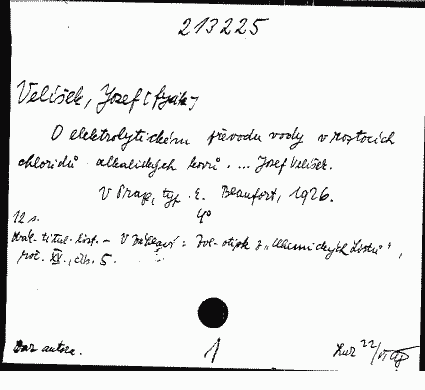 213225
Velíšek, Jozef [fysik]
O elektrolytickém převodu vody v roztocích
chloridů alkalických kovů. ... Jozef Velíšek.
V Praze, typ. E. Beaufort, 1926.
12 s. 4°
Obál. titul. list. - V záhlaví: Zvl. otisk z „Chemických Listů",
roč. XX., čís. 5.
Dar autora. 1